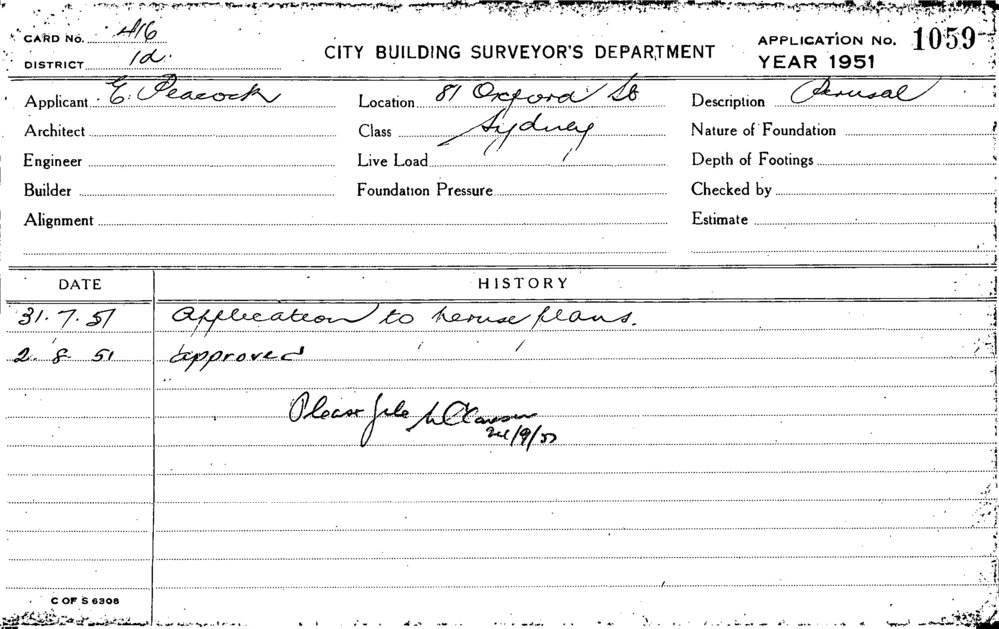 CARD No. 416
DISTRICT 1d.
CITY BUILDING SURVEYOR'S DEPARTMENT
APPLICATION No. 1059
YEAR 1951
Applicant E. Peacock
Location 81 Oxford St
Description Perusal
Architect
Class Sydney
Nature of Foundation
Engineer
Live Load
Depth of Footings
Builder
Foundation Pressure
Checked by
Alignment
Estimate
DATE HISTORY
31.7.51 Application to peruse plans.
2.8.51 approved
Please file
C OF S 6308